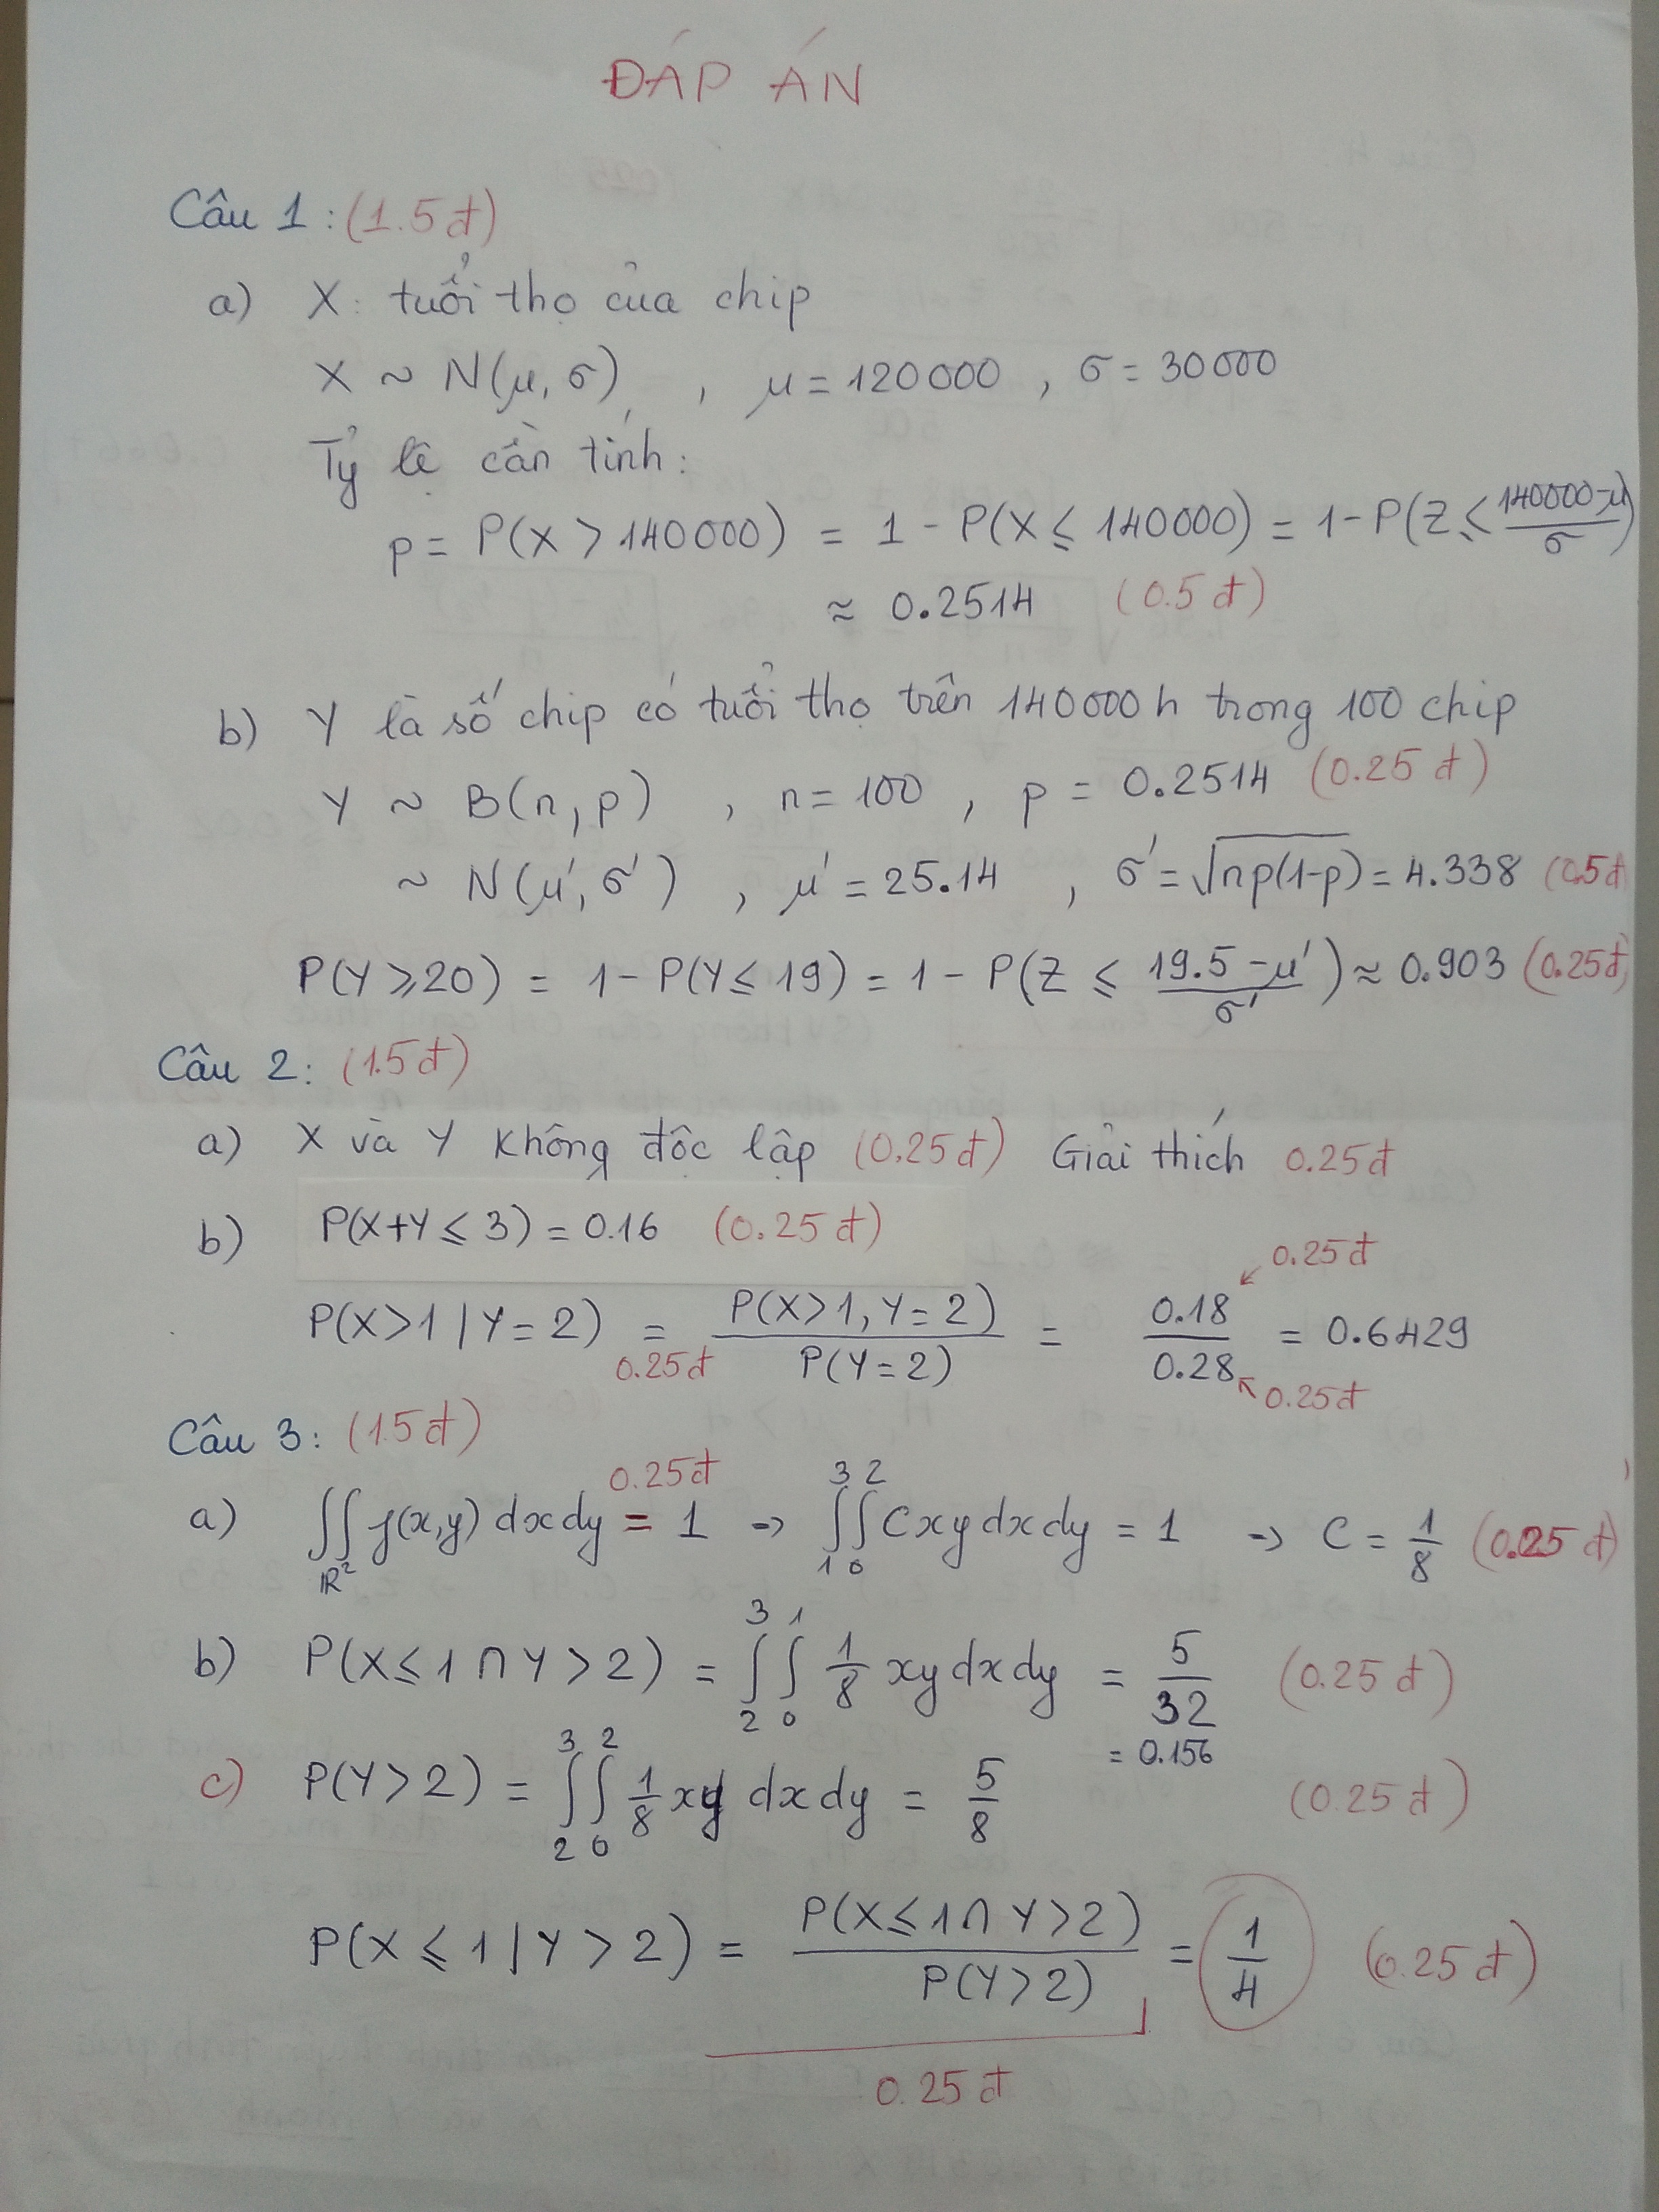 ĐÁP ÁN
Câu 1: (1.5đ)
a) X: tuổi thọ của chip
X ~ N(μ, σ), μ = 120000, σ = 30000
Tỷ lệ cần tính:
p = P(X > 140000) = 1 - P(X ≤ 140000) = 1 - P(Z ≤ (140000-μ)/σ)
≈ 0.2514 (0.5đ)
b) Y là số chip có tuổi thọ trên 140000h trong 100 chip
Y ~ B(n, p), n = 100, p = 0.2514 (0.25đ)
~ N(μ', σ'), μ' = 25.14, σ' = √(np(1-p)) = 4.338 (0.5đ
P(Y ≥ 20) = 1 - P(Y ≤ 19) = 1 - P(Z ≤ (19.5-μ')/σ') ≈ 0.903 (0.25đ
Câu 2: (1.5đ)
a) X và Y không độc lập (0.25đ) Giải thích 0.25đ
b) P(X+Y ≤ 3) = 0.16 (0.25đ)
0.25đ
P(X>1 | Y=2) = P(X>1, Y=2)/P(Y=2) = 0.18/0.28 = 0.6429
0.25đ 0.25đ
Câu 3: (1.5đ)
0.25đ
a) ∬_{R²} f(x,y) dxdy = 1 → ∫_1^3 ∫_0^2 Cxy dxdy = 1 → C = 1/8 (0.25đ)
b) P(X ≤ 1 ∩ Y > 2) = ∫_2^3 ∫_0^1 1/8 xy dxdy = 5/32 (0.25đ)
= 0.156
c) P(Y > 2) = ∫_2^3 ∫_0^2 1/8 xy dxdy = 5/8 (0.25đ)
P(X ≤ 1 | Y > 2) = P(X ≤ 1 ∩ Y > 2)/P(Y > 2) = 1/4 (0.25đ)
0.25đ